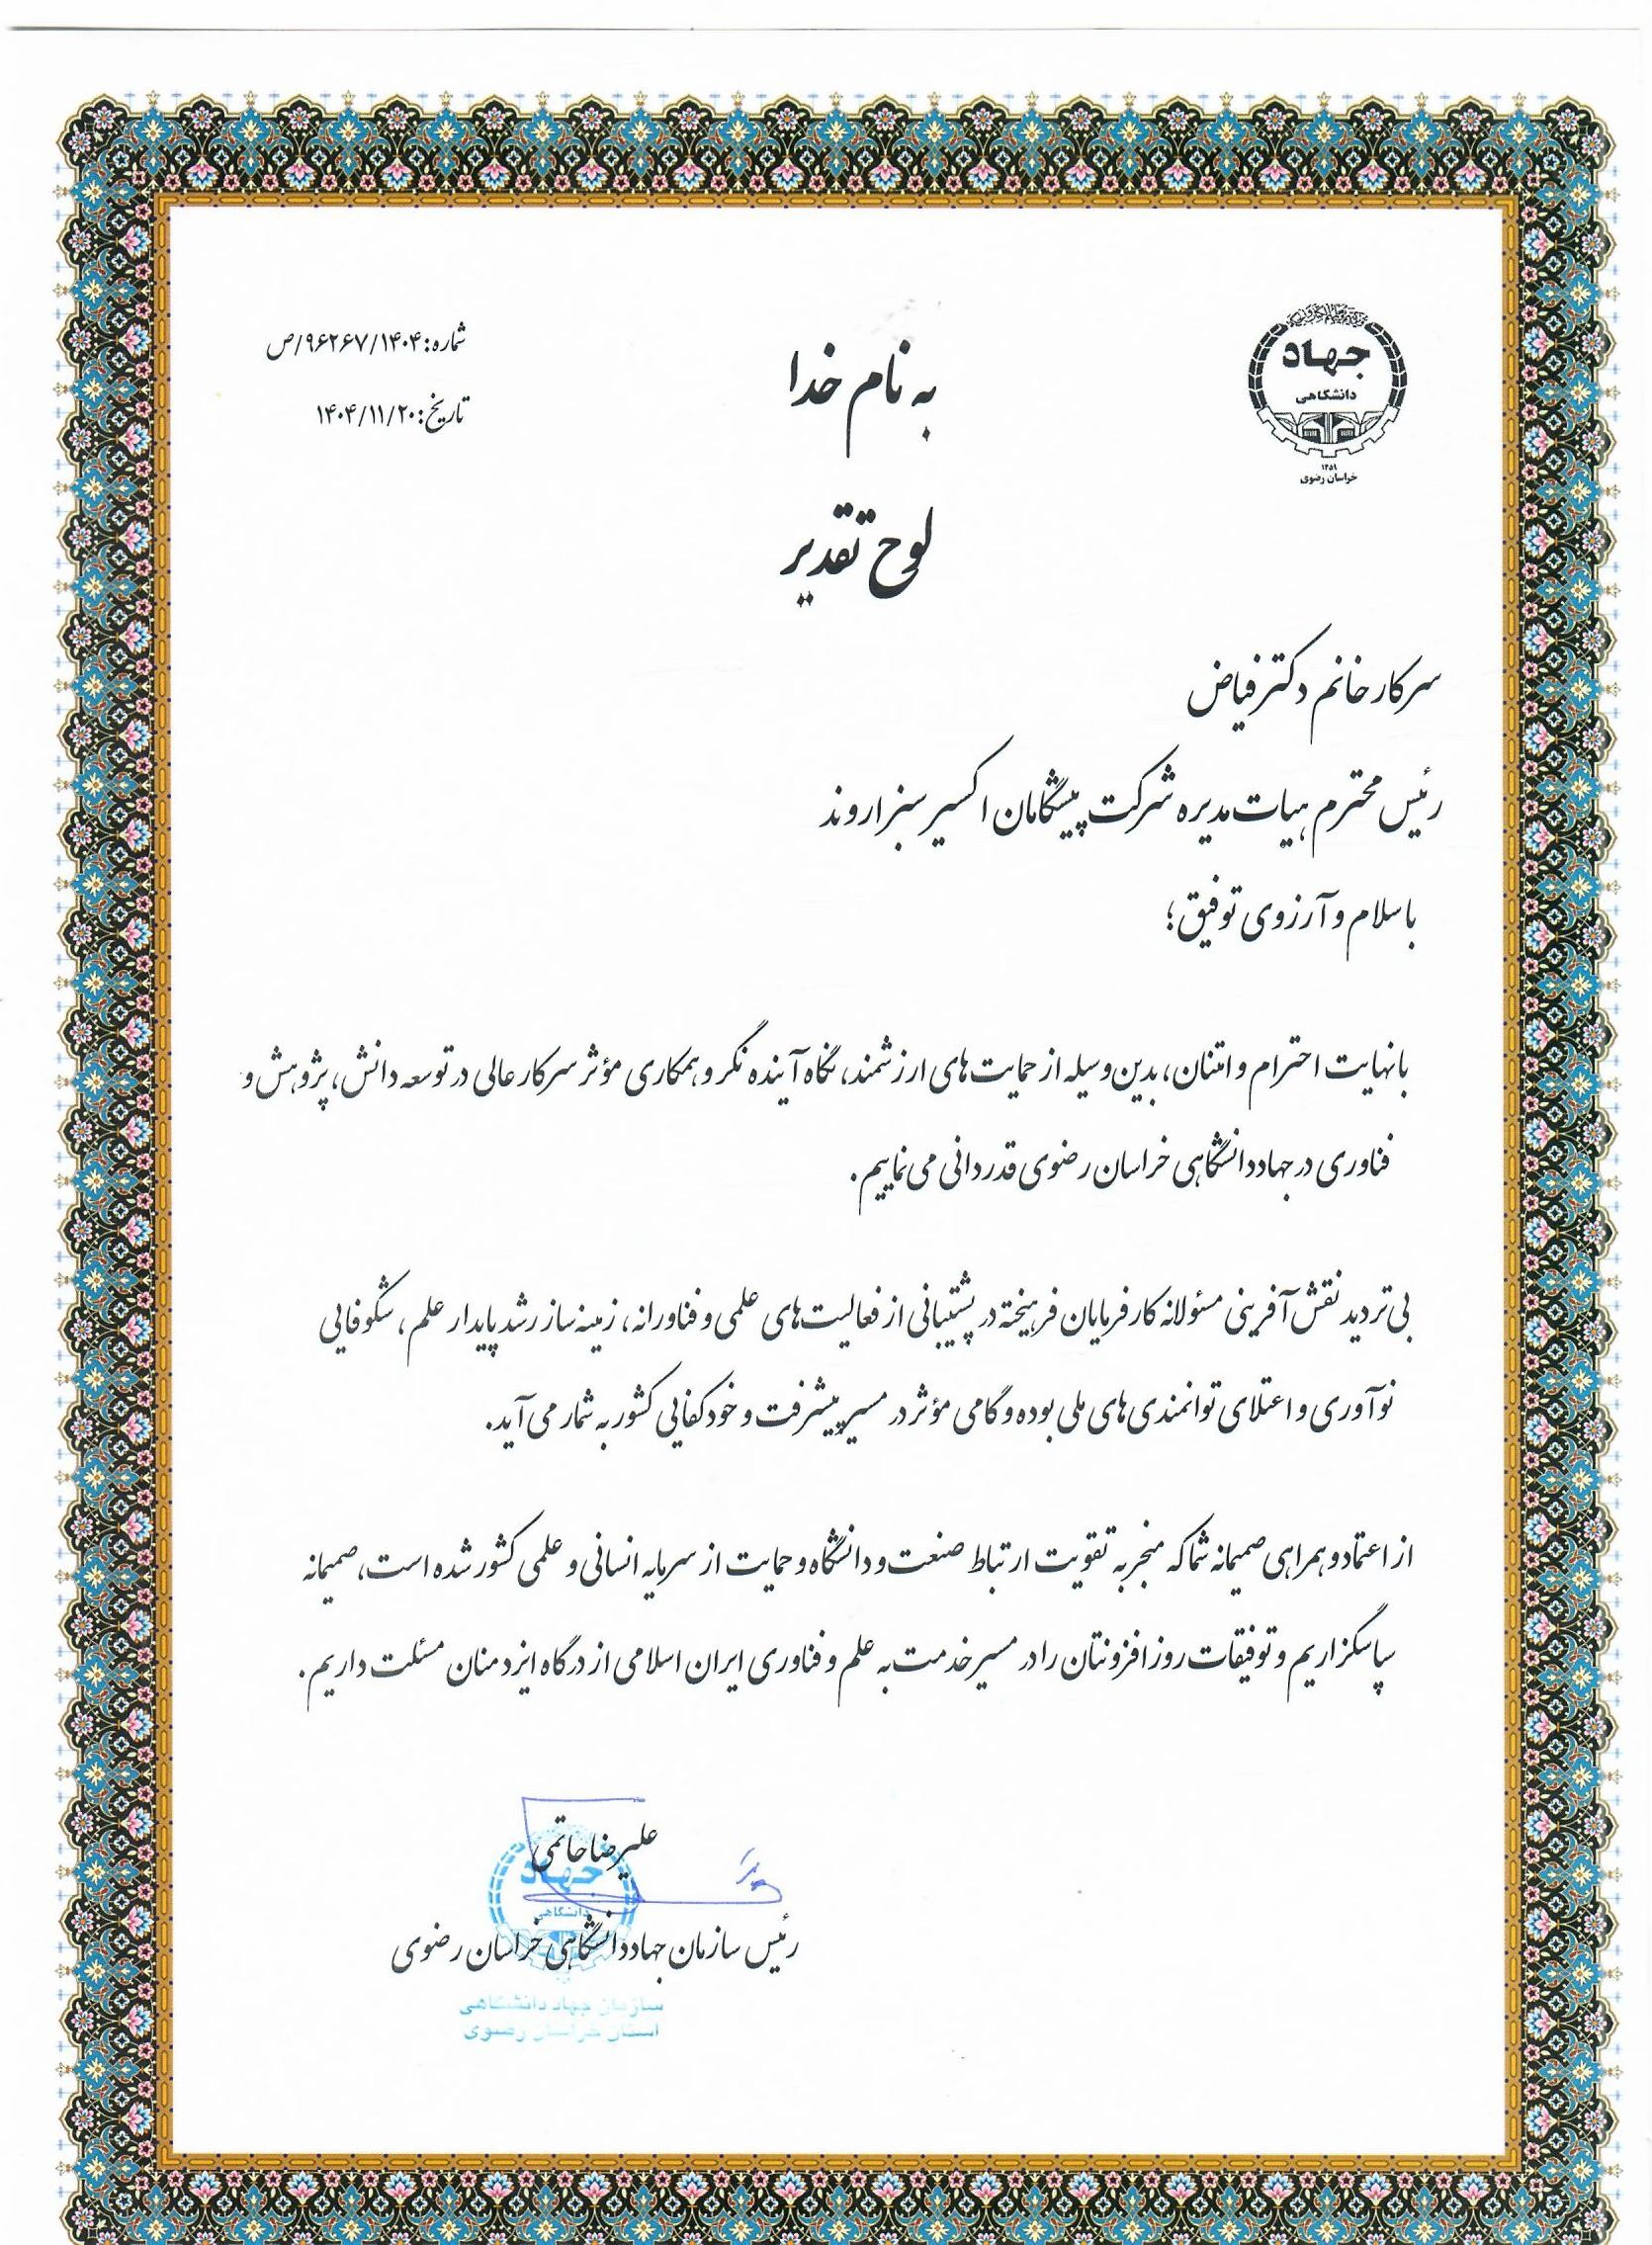 جهاد
دانشگاهی
۱۳۵۹
خراسان رضوی
به نام خدا
شماره: ۹۶۲۶۷/۱۴۰۴/ص
تاریخ: ۱۴۰۴/۱۱/۲۰
لوح تقدیر
سرکار خانم دکتر فیاض
رئیس محترم هیات مدیره شرکت پیشگامان اکسیر سبز اروند
با سلام و آرزوی توفیق؛
با نهایت احترام و امتنان، بدین وسیله از حمایت های ارزشمند، نگاه آینده نگر و همکاری مؤثر سرکار عالی در توسعه دانش، پژوهش و
فناوری در جهاددانشگاهی خراسان رضوی قدردانی می نماییم.
بی تردید نقش آفرینی مسئولانه کارفرمایان فرهیخته در پشتیبانی از فعالیت های علمی و فناورانه، زمینه ساز رشد پایدار علم، شکوفایی
نوآوری و اعتلای توانمندی های ملی بوده و گامی مؤثر در مسیر پیشرفت و خودکفایی کشور به شمار می آید.
از اعتماد و همراهی صمیمانه شما که منجر به تقویت ارتباط صنعت و دانشگاه و حمایت از سرمایه انسانی و علمی کشور شده است، صمیمانه
سپاسگزاریم و توفیقات روزافزونتان را در مسیر خدمت به علم و فناوری ایران اسلامی از درگاه ایزد منان مسئلت داریم.
علیرضا حاتمی
جهاد
دانشگاهی
رئیس سازمان جهاددانشگاهی خراسان رضوی
سازمان جهاد دانشگاهی
استان خراسان رضوی